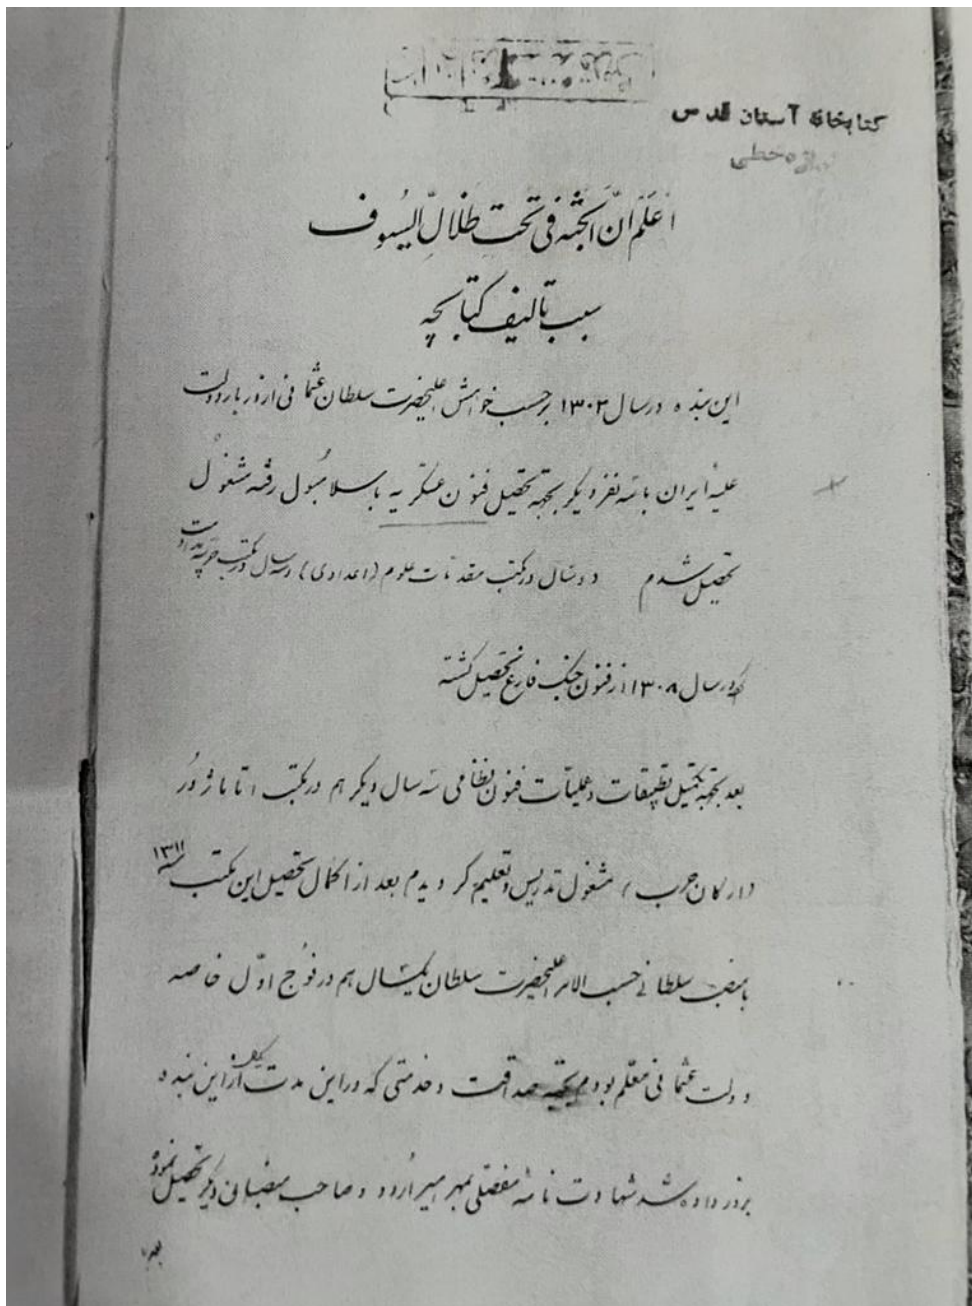 کتابخانه آستان قدس
خطی
اَعلَم انَّ الجَنّه فی تحت ظلالِ السیوف
سبب تالیف کتابچه
این بنده در سال ۱۳۰۳ برحسب خواهش اعلیحضرت سلطان عثمانی از دربار دولت
علیهٔ ایران با سه نفر دیگر بجهة تحصیل فنون عسکریه باسلامبول رفته مشغول
تحصیل شدم دو سال در مکتب مقدمات علوم (اعدادی) و سه سال در مکتب حربیه
که در سال ۱۳۰۸ از فنون جنگ فارغ تحصیل گشته
بعد بجهة تکمیل تطبیقات و عملیّات فنون نظامی سه سال دیگر هم در مکتب اتاماژور
(ارکان حرب) مشغول تدریس و تعلیم گردیدم بعد از اکمال تحصیل این مکتب ۱۳۱۱
بامنصب سلطانی حسب الامر اعلیحضرت سلطان یکسال هم در فوج اوّل خاصه
دولت عثمانی معلّم بودم بجهة صداقت و خدمتی که در این مدت از این بنده
بروز داده شد شهادت نامهٔ مفصّلی بمهر امیر اُردو و صاحب منصبان دیگر تحصیل نموده
بعد